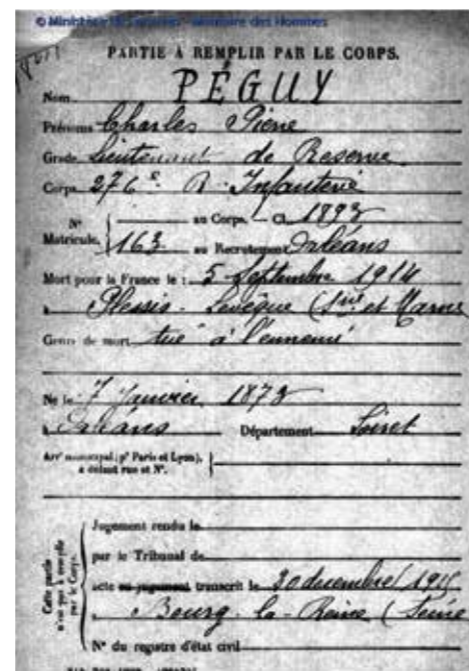 © Ministère de - Mémoire des Hommes
PARTIE À REMPLIR PAR LE CORPS.
Nom PÉGUY
Prénoms Charles Pierre
Grade Lieutenant de Reserve
Corps 276e R. Infanterie
N° Matricule. au Corps. — Cl. 1893
163 au Recrutement Orléans
Mort pour la France le : 5 Septembre 1914
à Plessis - Levêque (Sne et Marne
Genre de mort tué à l'ennemi
Né le 7 Janvier 1873
à Orléans Département Loiret
Arrt municipal (pr Paris et Lyon),
à défaut rue et N°.
Cette partie n'est pas à remplir par le Corps.
Jugement rendu le
par le Tribunal de
acte ou jugement transcrit le 30 décembre 1915
Bourg-la-Reine (Seine
N° du registre d'état civil